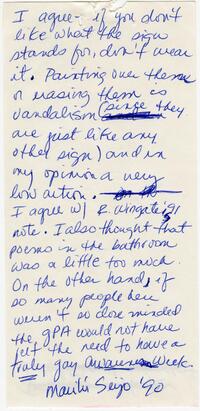 I agree - if you don't
like what the sign
stands for, don't wear
it. Painting over them
or erasing them is
vandalism (since they
are just like any
other sign) and in
my opinion a very
low action.
I agree w/ R. Wingate '91
note. I also thought that
poems in the bathroom
was a little too much.
On the other hand, if
so many people here
weren't so close minded
the GPA would not have
felt the need to have a
truly gay Awareness Week.
'90